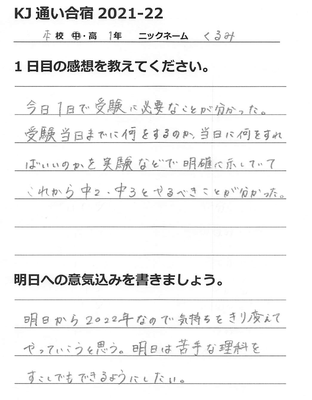 KJ 通い合宿 2021-22
本校 中・高 1年 ニックネーム くるみ
1日目の感想を教えてください。
今日1日で受験に必要なことが分かった。
受験当日までに何をするのか、当日に何をすれ
ばいいのかを実験などで明確に示していて
これから中2・中3とやるべきことが分かった。
明日への意気込みを書きましょう。
明日から2022年なので気持ちをきり変えて
やっていこうと思う。明日は苦手な理科を
すこしでもできるようにしたい。